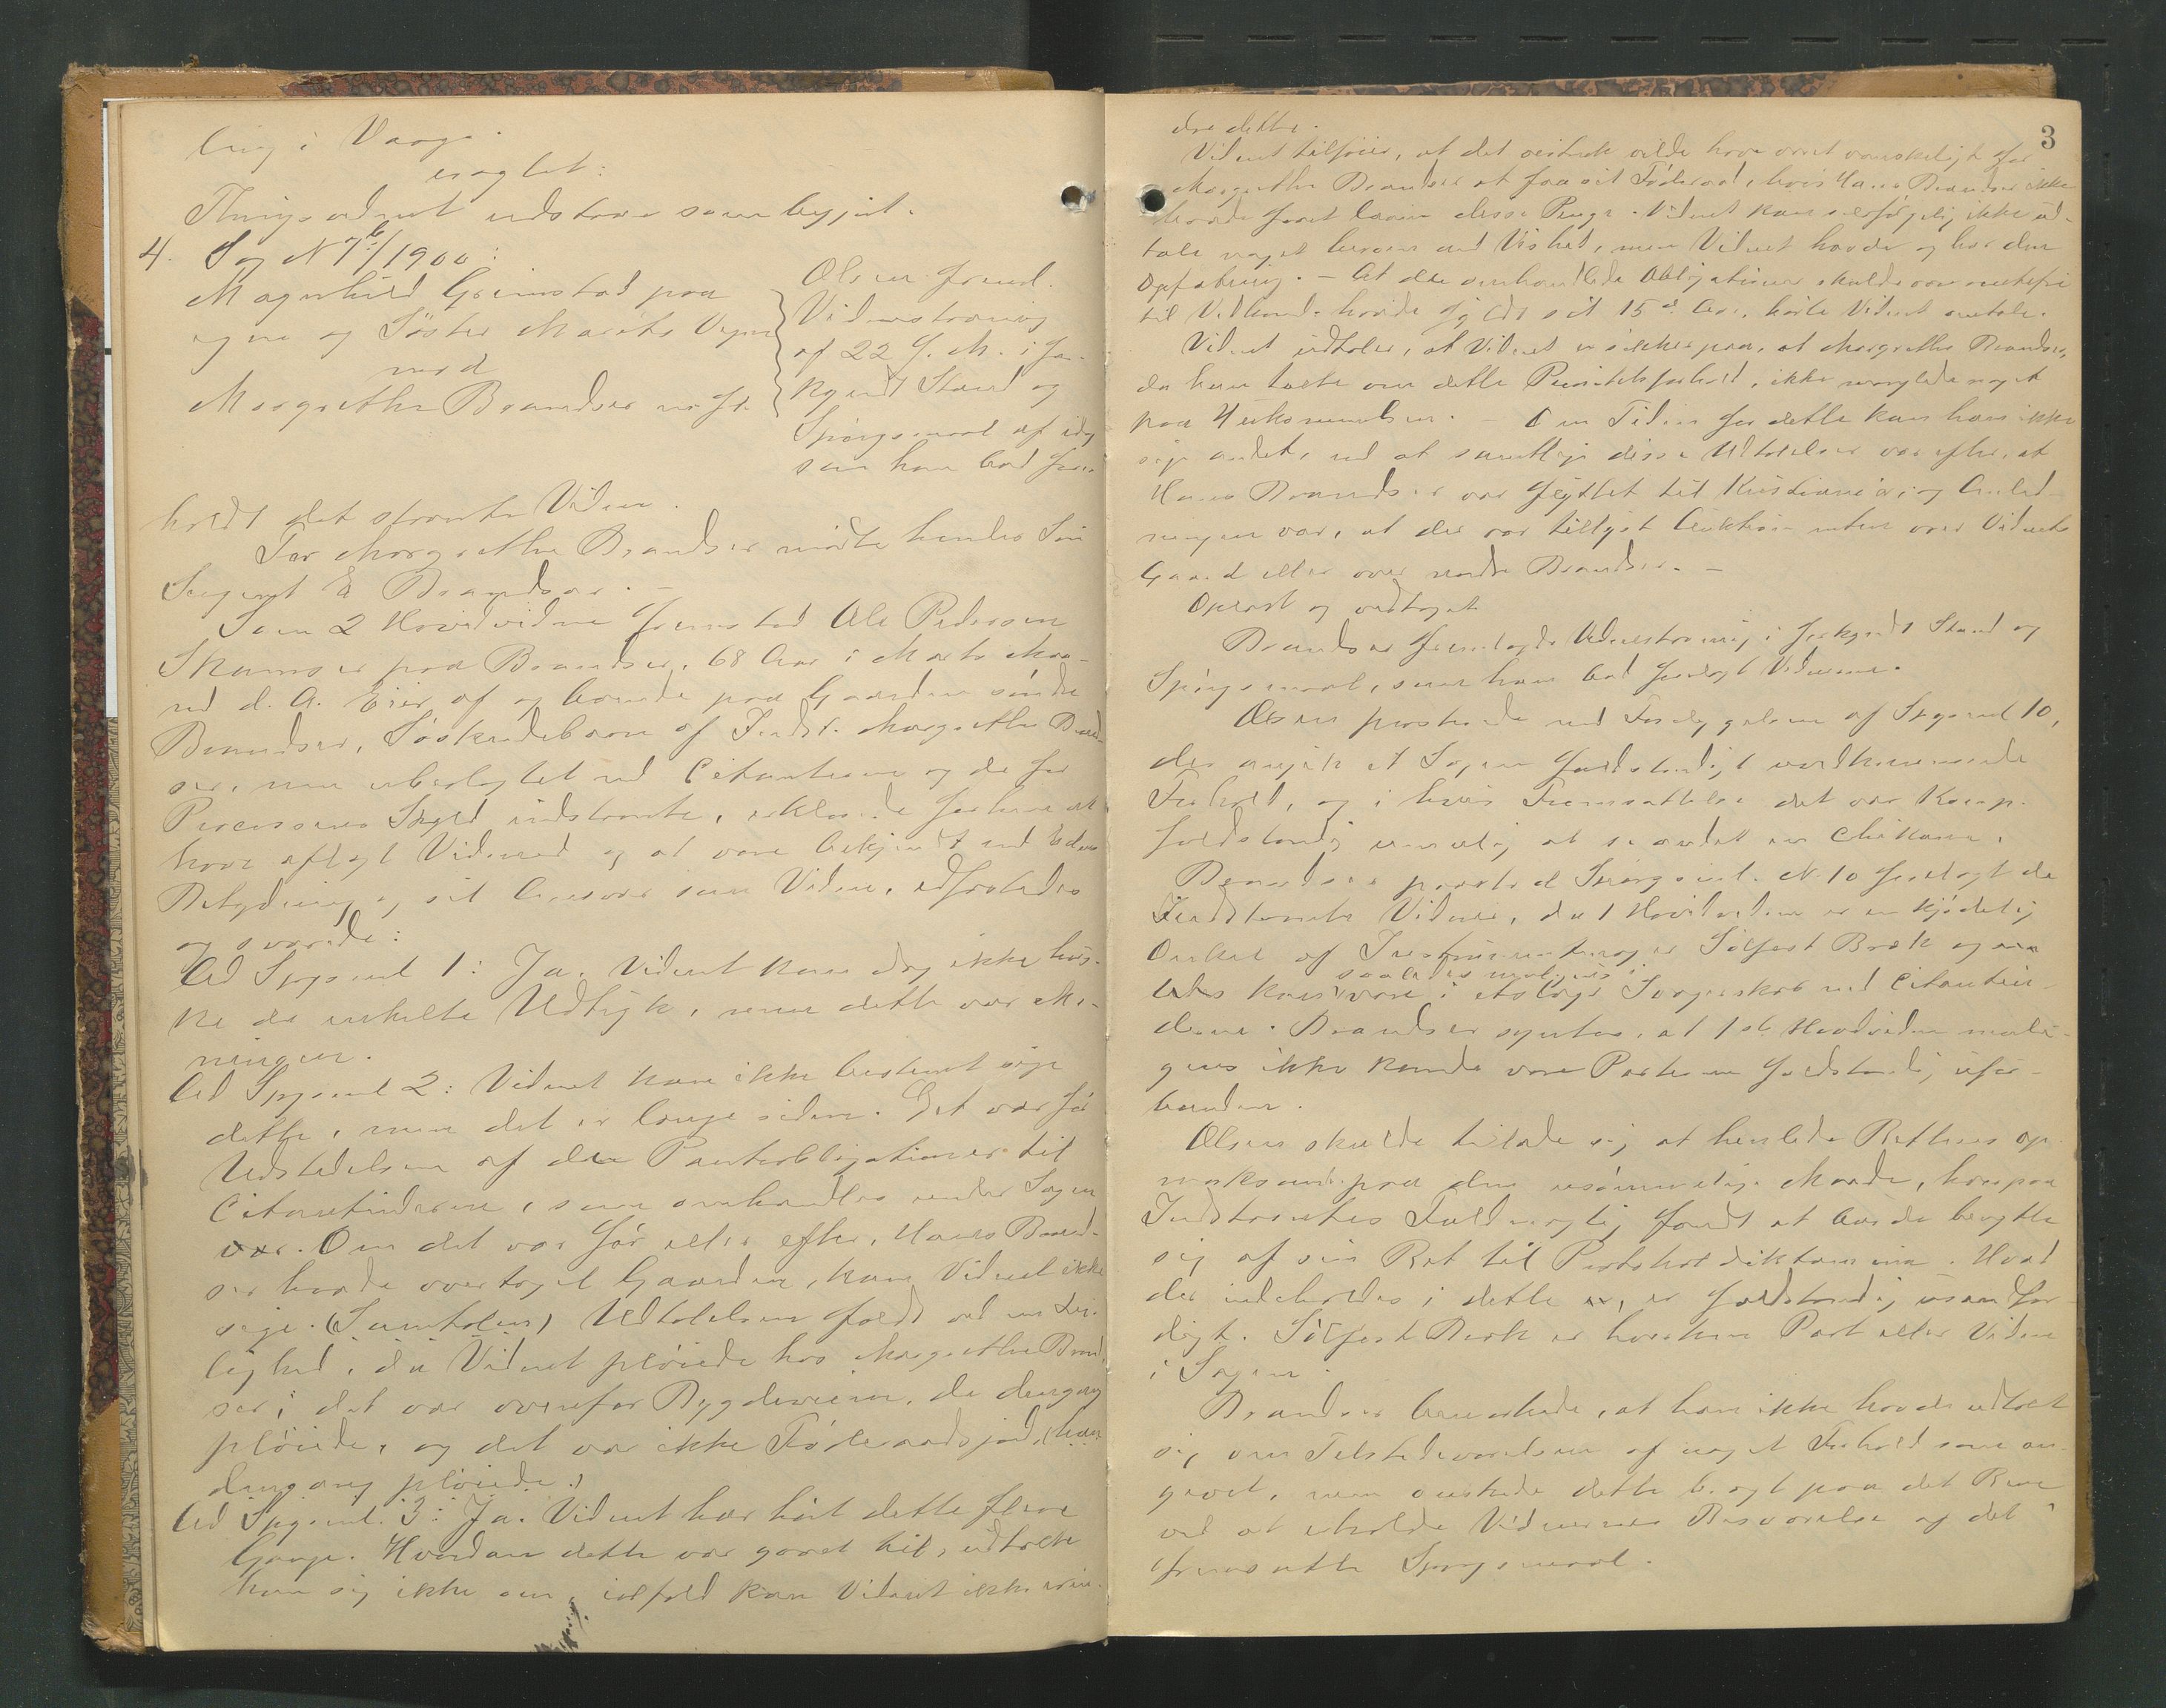 ling i Vaage.
Thingsvidnet udstaar som begjært.
4. Sag N 7b/1900:
Magnhild Grimstad paa
egne og Søster Marits Vegne
mod
Margrethe Brandser
Olsen freml.
Vidnestævning
af 22 f. M. i for-
kyndt Stand og
Spørgsmaal af idag
som han bad fore-
holdt det stævnte Vidne.
For Margrethe Brandser mødte hendes Søn
Sergent E Brandser. -
Som 2 Hovedvidne fremstod Ole Pedersen
paa Brandser, 68 Aar i Marts Maa-
ned d. A. Eier af og boende paa Gaarden søndre
Brandser, Søskendebarn af Indst. Margrethe Brand-
ser, men ubeslægtet med Citantinderne og de for
Processens Skyld indstævnte, erklærede forhen at
have aflagt Vidneed og at være bekjendt med Edens
Betydning og sit Ansvar som Vidne, edfæstedes
og svarede:
Ad Spgsml 1: Ja. Vidnet kan dog ikke hus-
ke de enkelte Udtryk, men dette var Me-
ningen.
Ad Spgsml 2: Vidnet kan ikke bestemt sige
dette, men det er længe siden. Det var før
Udstedelsen af den Panteobligationer til
Citantinderne, som omhandles under Sagen
var. Om det var før eller efter, Hans Brand-
ser havde overtaget Gaarden, kan Vidnet ikke
sige. (Samtalen) Udtalelsen faldt ved en Lei-
lighed, da Vidnet pløiede hos Margrethe Brand-
ser; det var ovenfor Bygdeveien, de dengang
pløiede, og det var ikke Føderaadsjord, (han
dengang pløiede.)
Ad Spgsml. 3: Ja. Vidnet har hørt dette flere
Gange. Hvordan dette var gaaet til, udtalte
hun sig ikke om, ialfald kan Vidnet ikke erin-
3
dre dette.
Vidnet tilføier, at det vilde have været vanskeligt for
Margrethe Brandser at faa sit Føderaad, hvis Hans Brandser ikke
havde faaet laane disse Penge. Vidnet kan selvfølgelig ikke ud-
tale noget herom med Vished, men Vidnet havde og har den
Opfatning. - At den omhandlede Obligationer skulde være rentefri
til Vedkom. havde fyldt sit 15de Aar, hørte Vidnet omtale.
Vidnet udtaler, at Vidnet er sikker paa, at Margrethe Brandser,
da hun talte om dette ikke manglede noget
paa Hukommelsen. - Om Tiden for dette kan han ikke
sige andet, end at samtlige disse Udtalelser var efter, at
Hans Brandser var flyttet til Kristiania, og Anled-
ningen var, at der var tillyst Auktion enten over Vidnets
Gaard eller over nordre Brandser. -
Oplæst og vedtaget
Brandser fremlagde Vidnestævning i forkyndt Stand og
Spørgsmaal, som han bad forelagt Vidnerne.
Olsen protesterede mod Forelæggelsen af Spgsml 10,
der angik et Sagen fuldstændigt uvedkommende
Forhold, og i hvis Fremsættelse det var Komp.
fuldstændig umulig at se andet en Chikane.
Brandser paastod Spørgsml. N 10 forelagt de
Indstævnte Vidner, da 1 Hovedvidne er en kjødelig
Onkel af Sølfest Bræk og
saaledes muligens
kan være i etslags Svogerskab med Citantin-
derne. Brandser syntes, at 1ste Hovedvidne muli-
gens ikke kunde være Parterne fuldstændig ufor-
bunden.
Olsen skulde tillade sig at henlede Rettens op-
mærksomhed paa den usømmelige Maade, hvorpaa
Indstævntes Fuldmægtig fandt at burde benytte
sig af sin Ret til Protokoldiktamina. Hvad
der indeholdes i dette er, er fuldstændig usandfær-
digt. Sølfest Bræk er hverken Part eller Vidne
i Sagen.
Brandser bemærkede, at han ikke havde udtalt
sig om Tilstedeværelsen af noget Forhold som an-
givet, men ønskede dette bragt paa det Rene
ved at erholde Vidnernes Besvarelse af det
fremsatte Spørgsmaal.